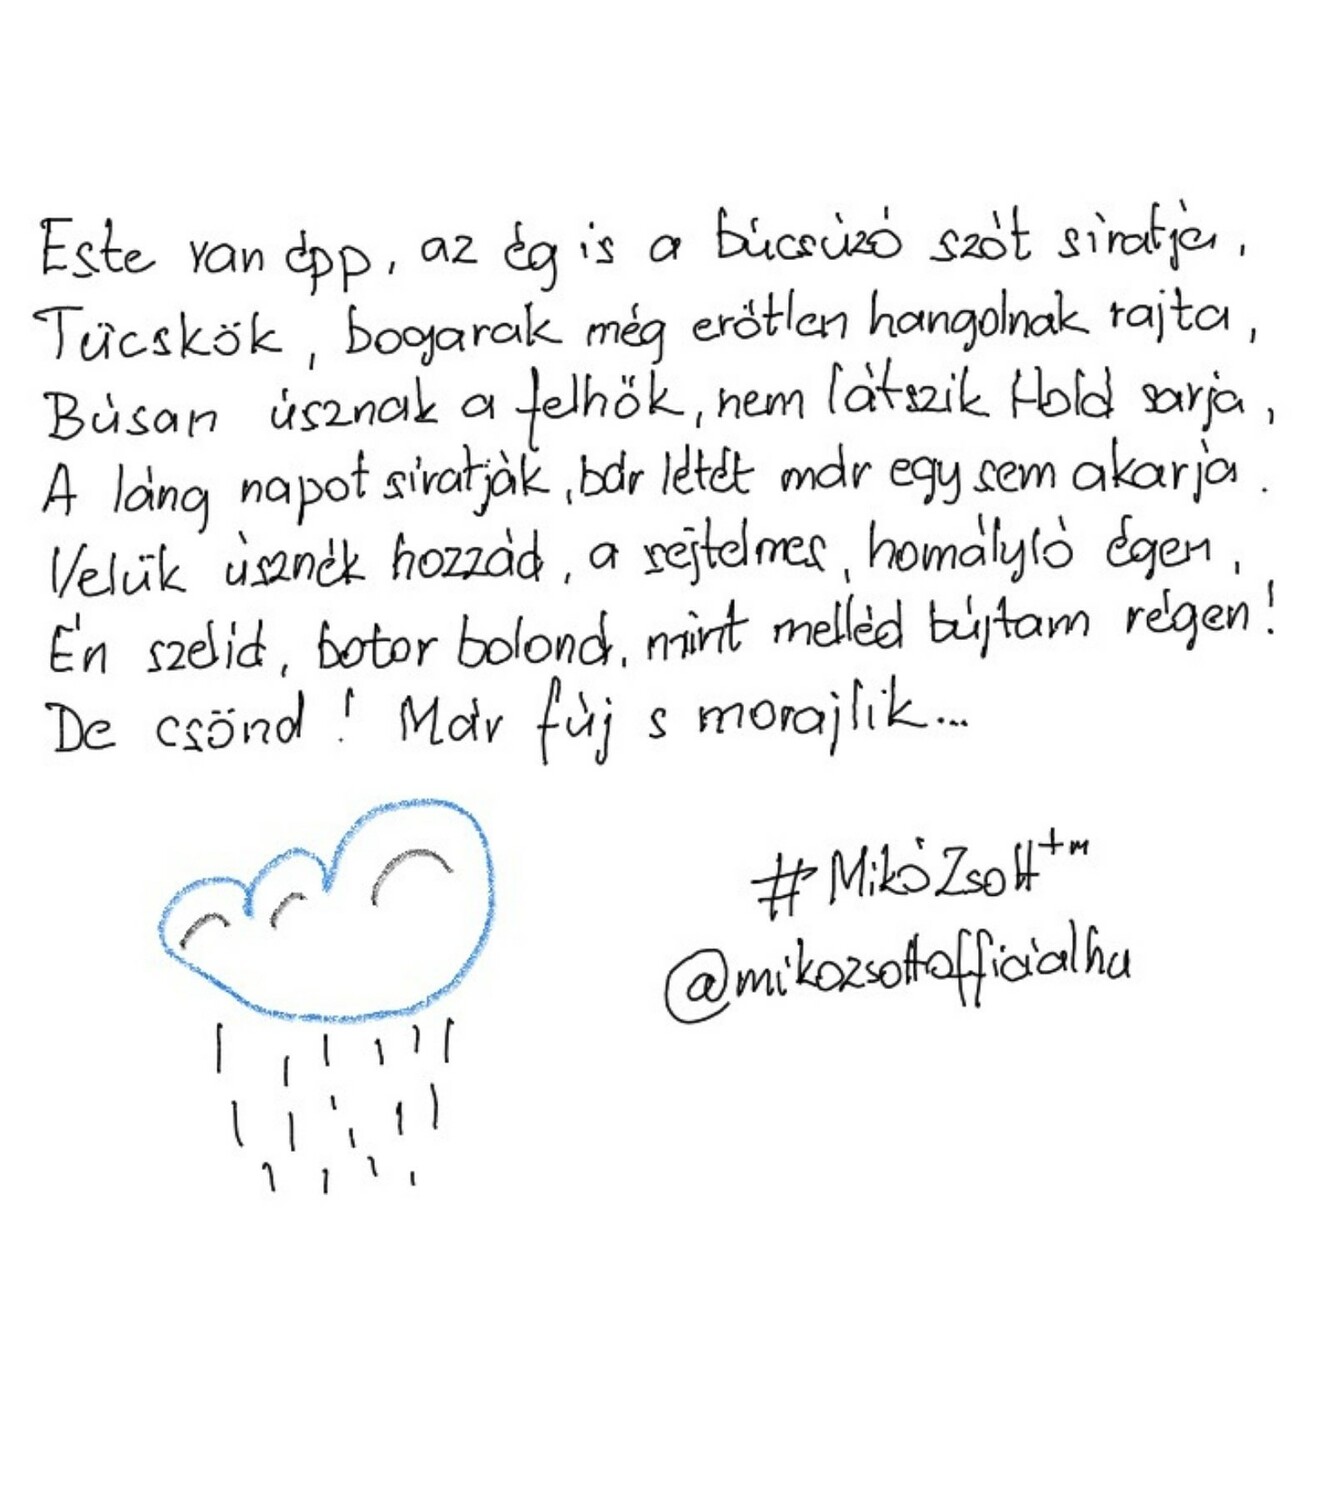 Este van épp, az ég is a búcsúzó szót siratja,
Tücskök, bogarak még erőtlen hangolnak rajta,
Búsan úsznak a felhők, nem látszik Hold sarja,
A láng napot siratják, bár létét már egy sem akarja.
Velük úsznék hozzád, a sejtelmes, homályló égen,
Én szelíd, botor bolond, mint melléd bújtam régen!
De csönd! Már fúj s morajlik...
#MikóZsolt+™
@mikozsoltofficialhu